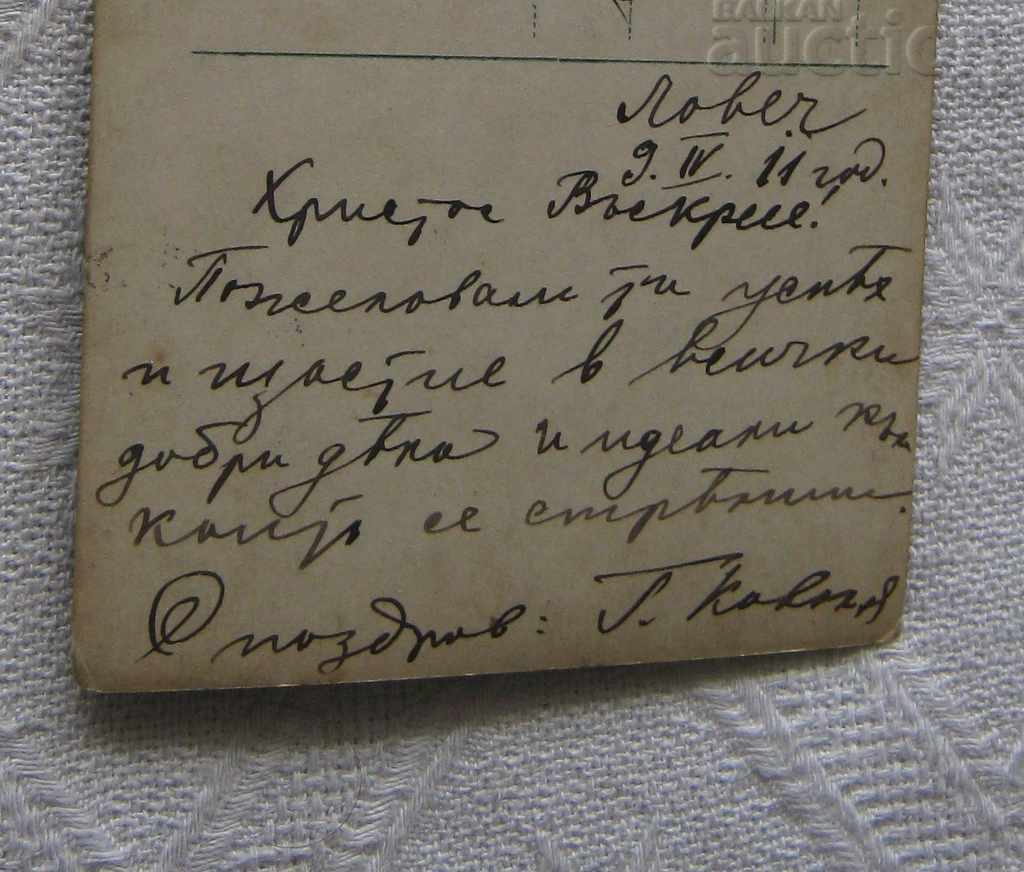 BALKAN
auctio
Ловеч
9. IV. 11 год.
Христос Възкресе!
Пожелавам ти успѣх
и щастие в всички
добри дѣла и идеали към
които се стрѣмиш.
С поздрав: Г.